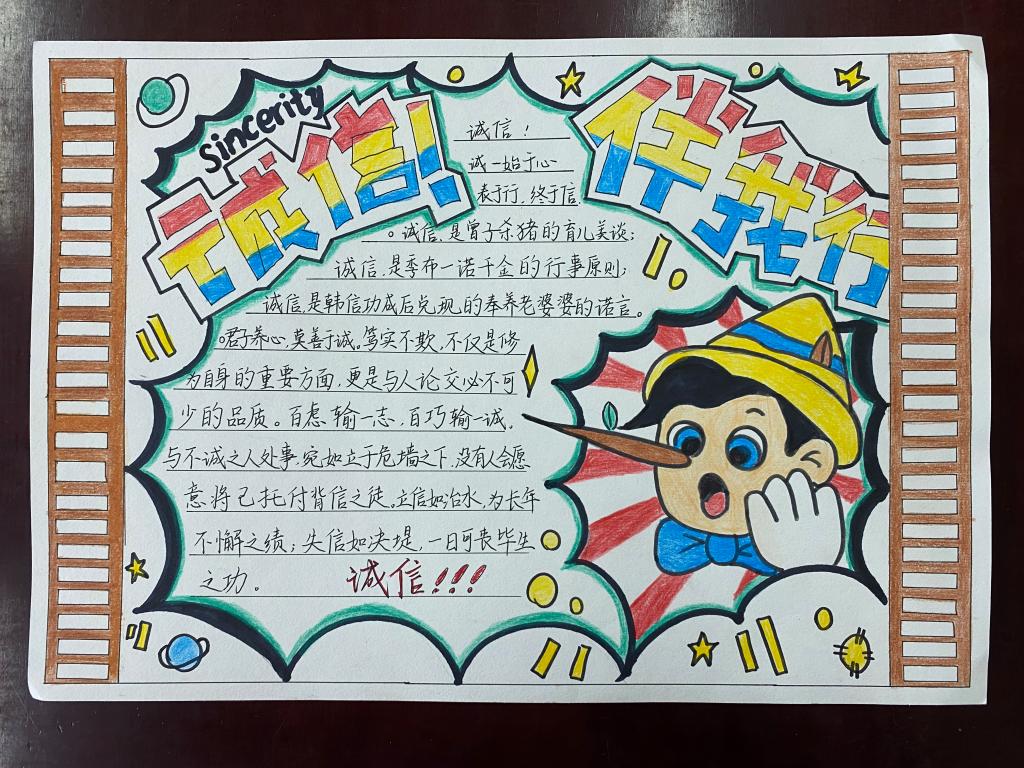 sincerity
诚信!
伴我行
诚信!
诚一始于心
表于行,终于信
。诚信,是曾子杀猪的育儿美谈;
诚信,是季布一诺千金的行事原则;
诚信,是韩信功成后兑现的奉养老婆婆的诺言。
。君子养心,莫善于诚。笃实不欺,不仅是修
为自身的重要方面,更是与人论交必不可
少的品质。百虑输一志,百巧输一诚。
与不诚之人处事,宛如立于危墙之下,没有人会愿
意将己托付背信之徒。立信如治水,为长年
不懈之绩;失信如决堤,一日可丧毕生
之功。
诚信!!!